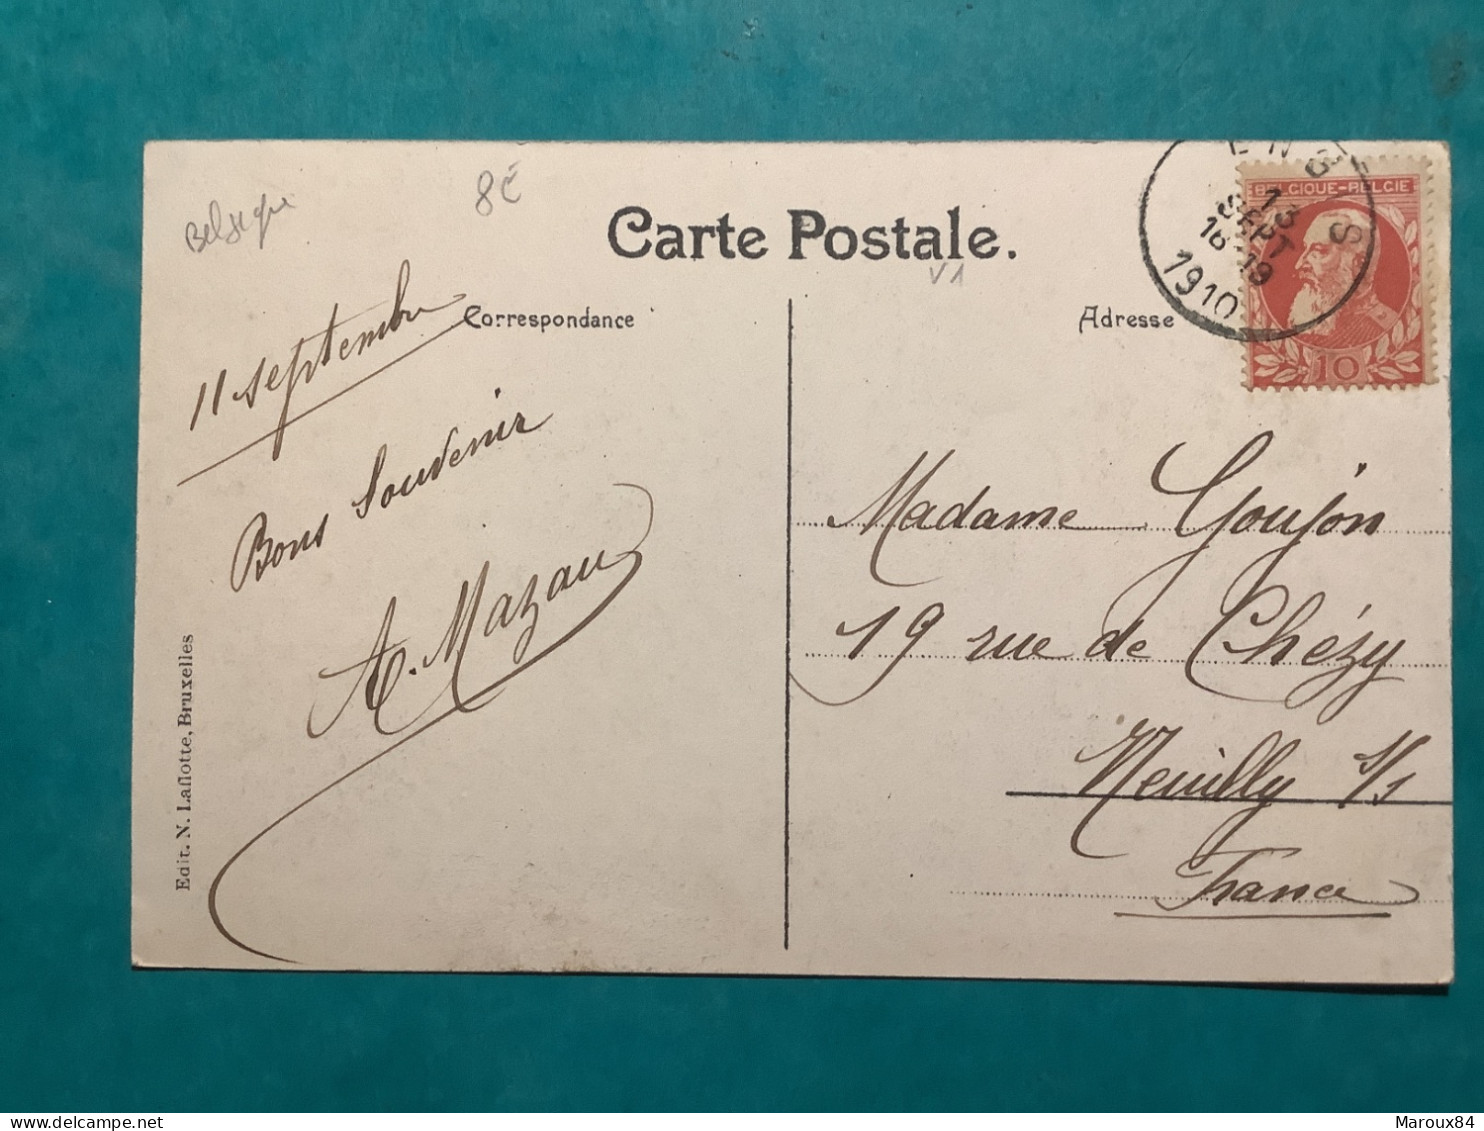 Belgique
8€
Carte Postale.
V1
Correspondance
Adresse
BELGIQUE-BELGIE
10
13
SEPT
18-19
1910
11 septembre
Bons Souvenir
A. Mazau
Madame Goujon
19 rue de Chézy
Neuilly s/s
France
Edit. N. Laflotte, Bruxelles
delcampe.net
Maroux84